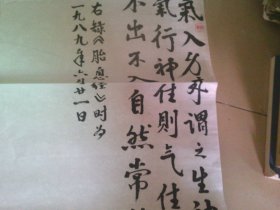 氣入身来謂之生
氣行神住則气住
不出不入自然常
右錄《胎息经》时为
一九八九年六月廿一日